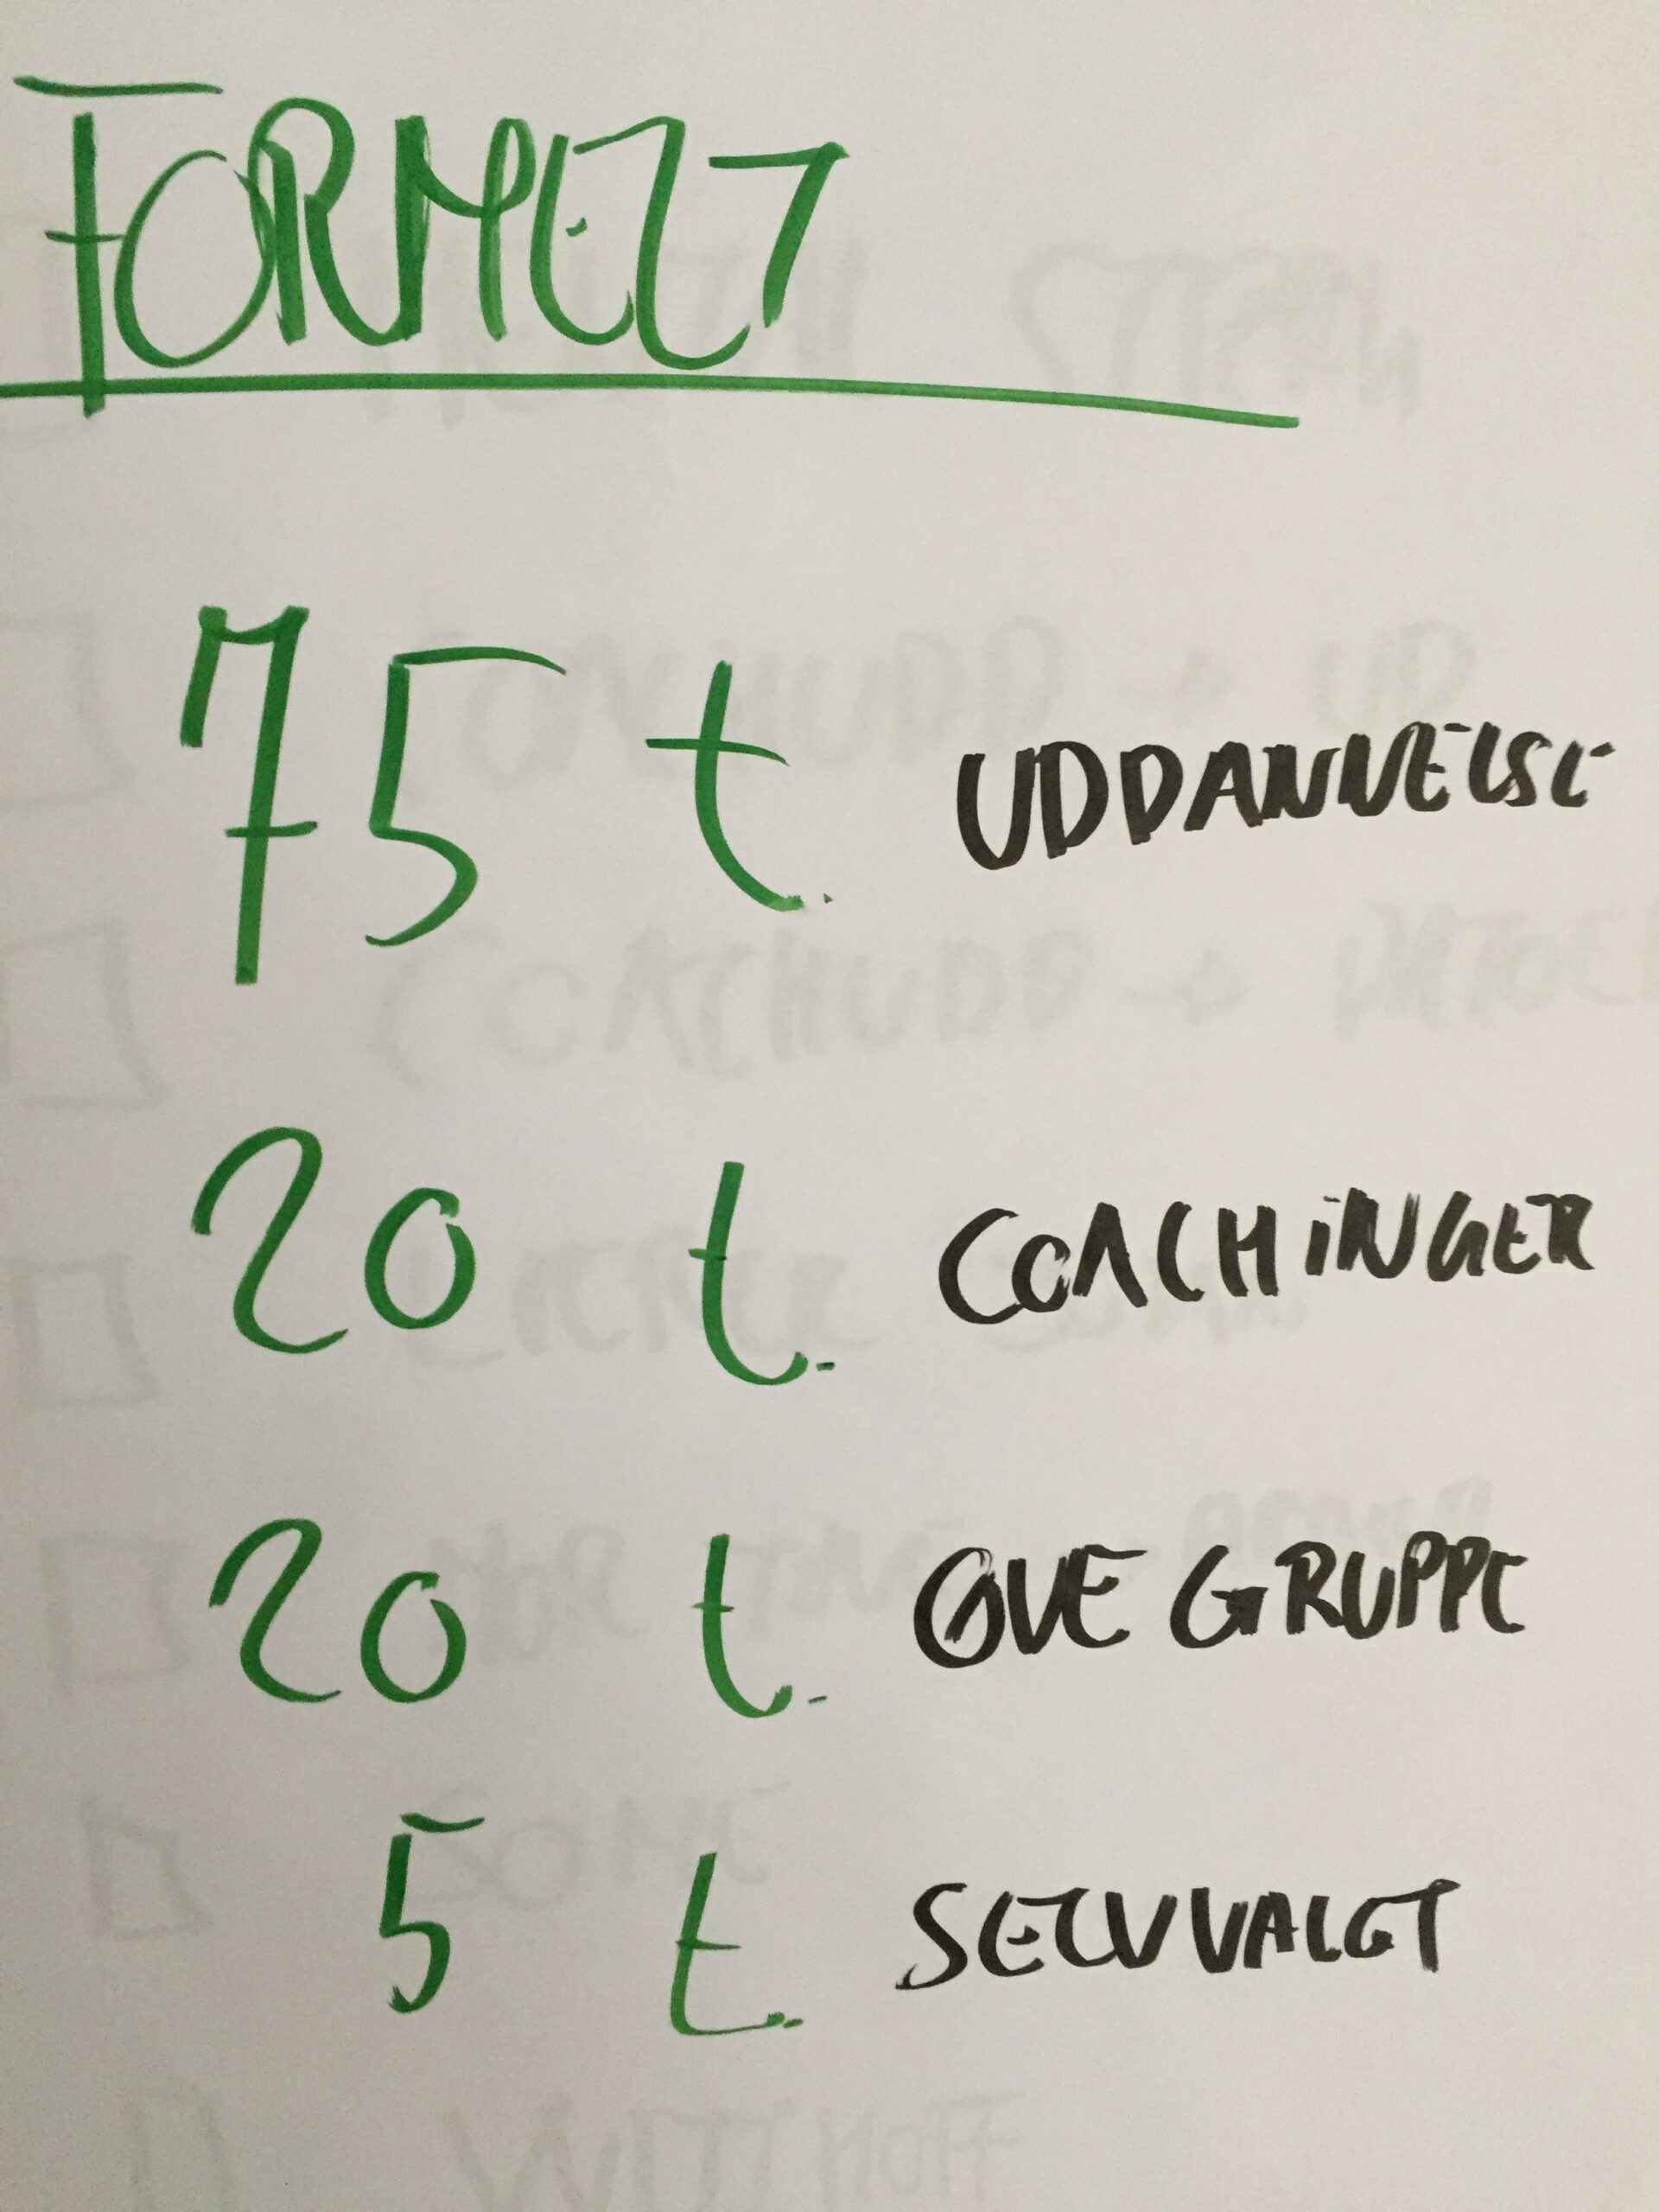 FORMELT
75 t. UDDANNELSE
20 t. COACHINGER
20 t. ØVE GRUPPE
5 t. SELVVALGT